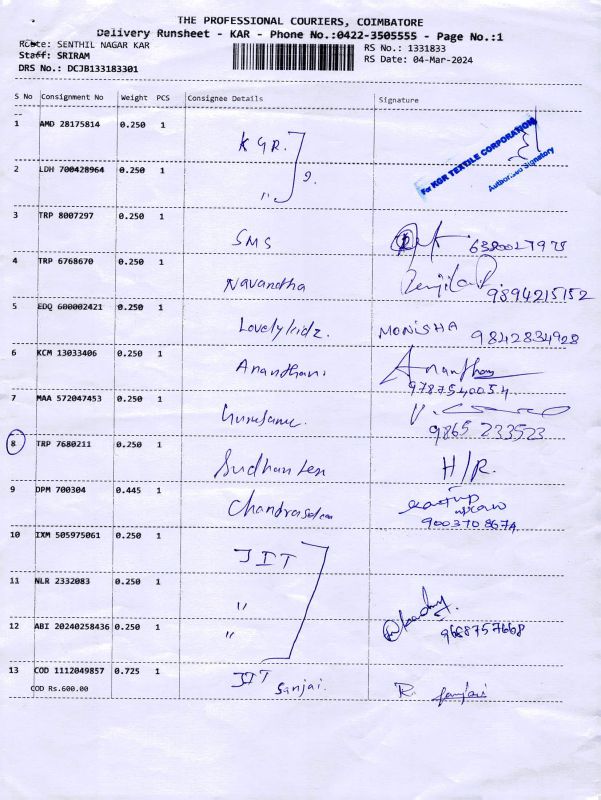 THE PROFESSIONAL COURIERS, COIMBATORE
Delivery Runsheet - KAR - Phone No.:0422-3505555 - Page No.:1
Route: SENTHIL NAGAR KAR
RS No.: 1331833
Staff: SRIRAM
RS Date: 04-Mar-2024
DRS No.: DCJB133183301
S No Consignment No Weight PCS Consignee Details Signature
1 AMD 28175814 0.250 1 KGR.
For KGR TEXTILE CORPORATION
Authorised Signatory
2 LDH 700428964 0.250 1 " 2.
3 TRP 8007297 0.250 1 SMS
4 TRP 6768670 0.250 1 Navandha 9894215152
5 EDQ 600002421 0.250 1 Lovely kidz. MONISHA 9842834928
6 KCM 13033406 0.250 1 Ananthani Anantham
9787540054
7 MAA 572047453 0.250 1
9865 233523
8 TRP 7680211 0.250 1 H/R.
9 DPM 700304 0.445 1
9003708674
10 IXM 505975061 0.250 1 JIT
11 NLR 2332083 0.250 1 "
12 ABI 20240258436 0.250 1 " 9688757668
13 COD 1112049857 0.725 1 JIT Sanjai. R. Sanjai
COD Rs.600.00